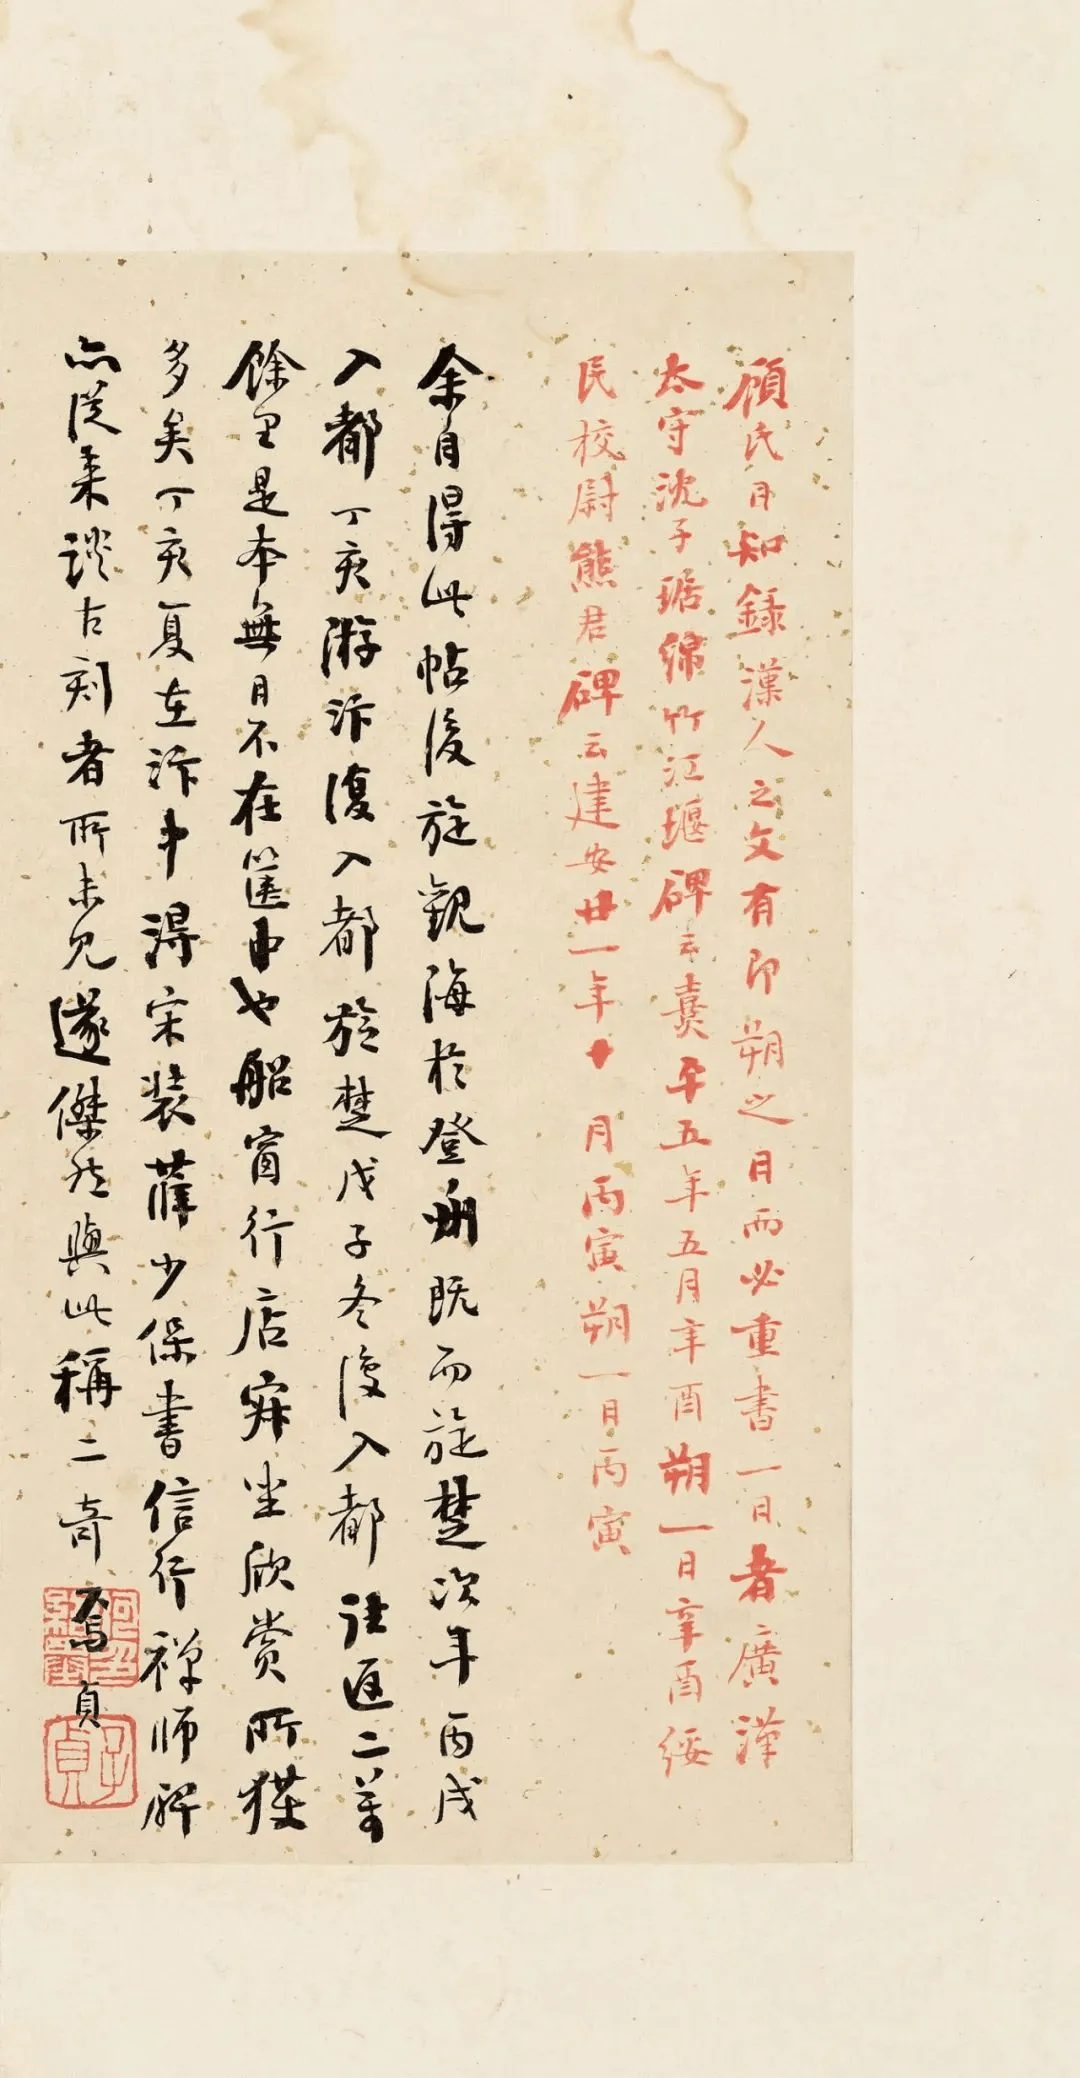 顧氏日知錄漢人之文有即朔之日而必重書一日者廣漢
太守沈子琚緜竹江堰碑云熹平五年五月辛酉朔一日辛酉綏
民校尉熊君碑云建安廿一年十月丙寅朔一日丙寅
余自得此帖後旋觀海於登州既而旋楚次年丙戌
入都丁亥游汴復入都旋楚戊子冬復入都往返二萬
餘里是本無日不在篋中也船窗行店寂坐欣賞所獲
多矣丁亥夏在汴中得宋裝薛少保書信行禪師碑
亦從來談古刻者所未見遂傑然與此稱二奇焉貞
子貞